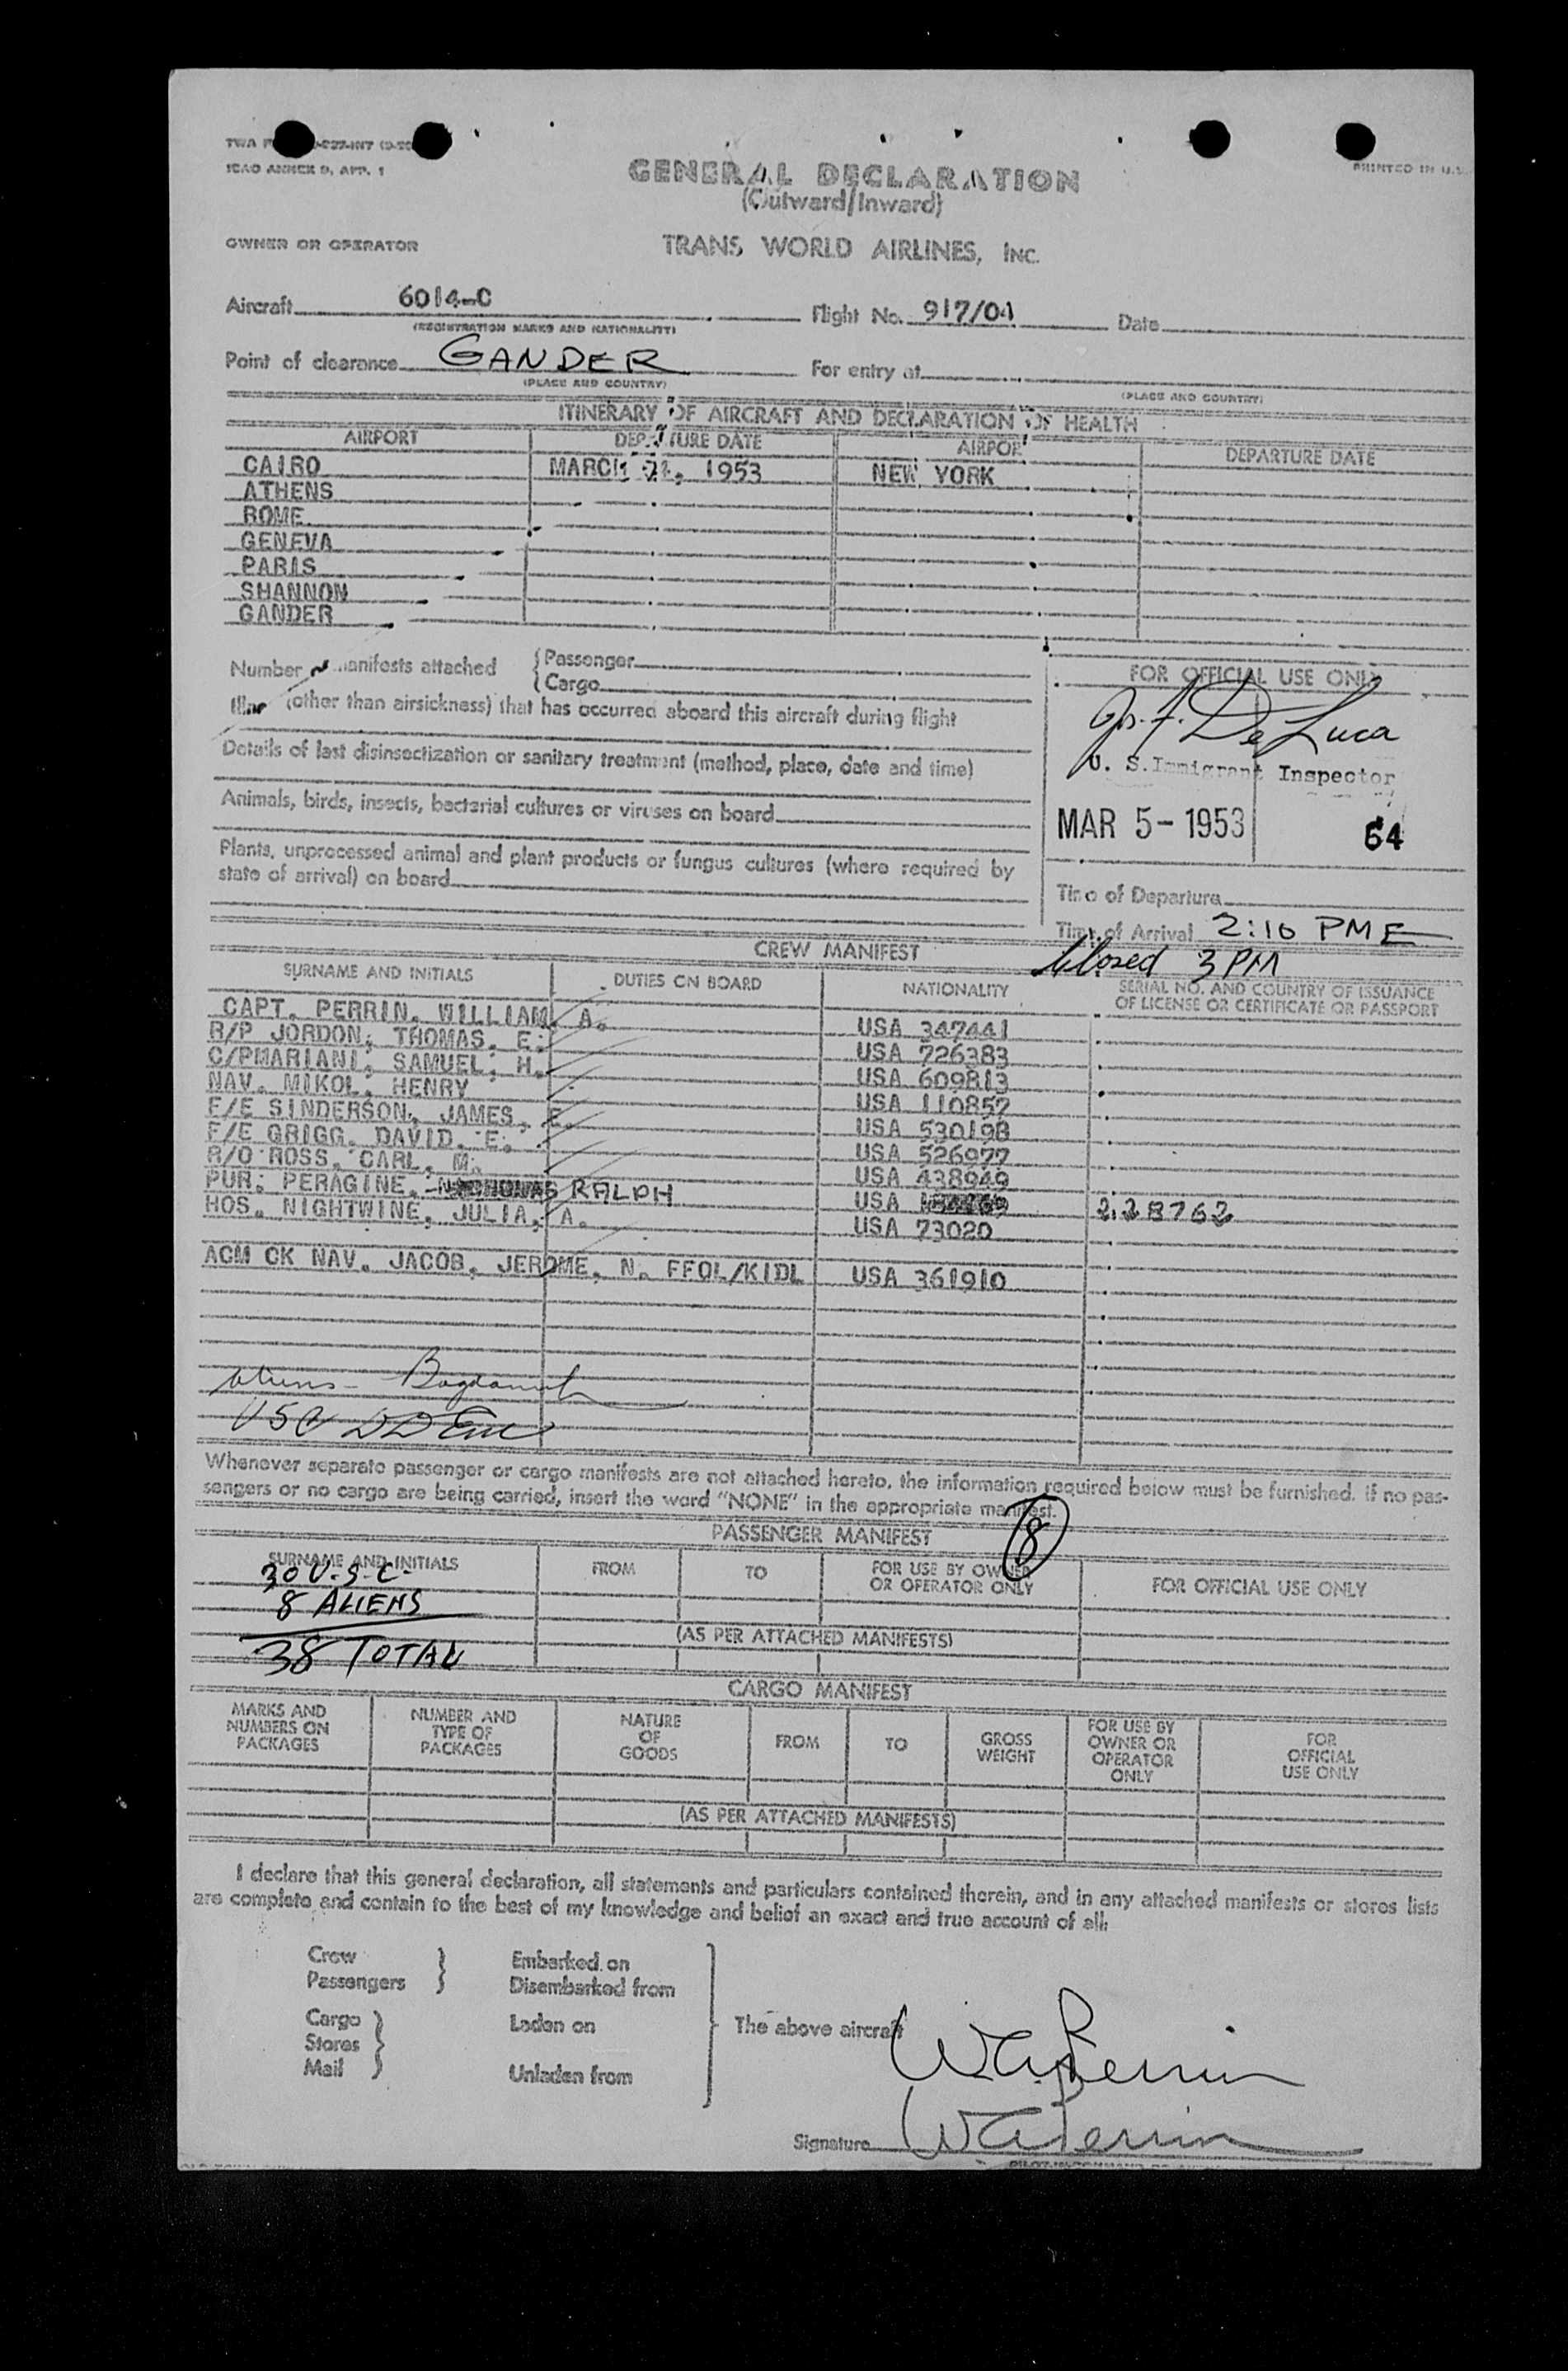 ICAO ANNEX 9, APP. 1
GENERAL DECLARATION
(Outward/Inward)
PRINTED IN U.S.
OWNER OR OPERATOR TRANS WORLD AIRLINES, INC.
Aircraft 6014-C Flight No. 917/04 Date
(REGISTRATION MARKS AND NATIONALITY)
Point of clearance GANDER For entry at
(PLACE AND COUNTRY) (PLACE AND COUNTRY)
ITINERARY OF AIRCRAFT AND DECLARATION OF HEALTH
AIRPORT DEPARTURE DATE AIRPORT DEPARTURE DATE
CAIRO MARCH 1953 NEW YORK
ATHENS
ROME
GENEVA
PARIS
SHANNON
GANDER
Number manifests attached { Passenger
{ Cargo
(other than airsickness) that has occurred aboard this aircraft during flight
Details of last disinsectization or sanitary treatment (method, place, date and time)
Animals, birds, insects, bacterial cultures or viruses on board
Plants, unprocessed animal and plant products or fungus cultures (where required by
state of arrival) on board
FOR OFFICIAL USE ONLY
De Luca
U. S. Immigrant Inspector
MAR 5-1953 64
Time of Departure
Time of Arrival 2:10 PME
Closed 3 PM
CREW MANIFEST
SURNAME AND INITIALS DUTIES ON BOARD NATIONALITY SERIAL NO. AND COUNTRY OF ISSUANCE
OF LICENSE OR CERTIFICATE OR PASSPORT
CAPT. PERRIN, WILLIAM. A. USA 347441
R/P JORDON, THOMAS. E. USA 726383
C/PMARIANI, SAMUEL, H. USA 609813
NAV. MIKOL, HENRY USA 110857
F/E SINDERSON, JAMES, E. USA 530198
F/E GRIGG, DAVID. E. USA 526977
R/O ROSS, CARL, M. USA 438949
PUR. PERAGINE, RALPH USA 228762
HOS. NIGHTWINE, JULIA, A. USA 73020
ACM CK NAV. JACOB, JEROME, N. FFOL/KIDL USA 361910
Aliens - Bogdanich
USC
Whenever separate passenger or cargo manifests are not attached hereto, the information required below must be furnished. If no pas-
sengers or no cargo are being carried, insert the word "NONE" in the appropriate manifest.
8
PASSENGER MANIFEST
SURNAME AND INITIALS FROM TO FOR USE BY OWNER
OR OPERATOR ONLY FOR OFFICIAL USE ONLY
30 U.S.C.
8 ALIENS
38 TOTAL
(AS PER ATTACHED MANIFESTS)
CARGO MANIFEST
MARKS AND
NUMBERS ON
PACKAGES
NUMBER AND
TYPE OF
PACKAGES
NATURE
OF
GOODS
FROM
TO
GROSS
WEIGHT
FOR USE BY
OWNER OR
OPERATOR
ONLY
FOR
OFFICIAL
USE ONLY
(AS PER ATTACHED MANIFESTS)
I declare that this general declaration, all statements and particulars contained therein, and in any attached manifests or stores lists
are complete and contain to the best of my knowledge and belief an exact and true account of all:
Crew
Passengers
Embarked on
Disembarked from
Cargo
Stores
Mail
Laden on
Unladen from
The above aircraft
WAPerrin
Signature WAPerrin